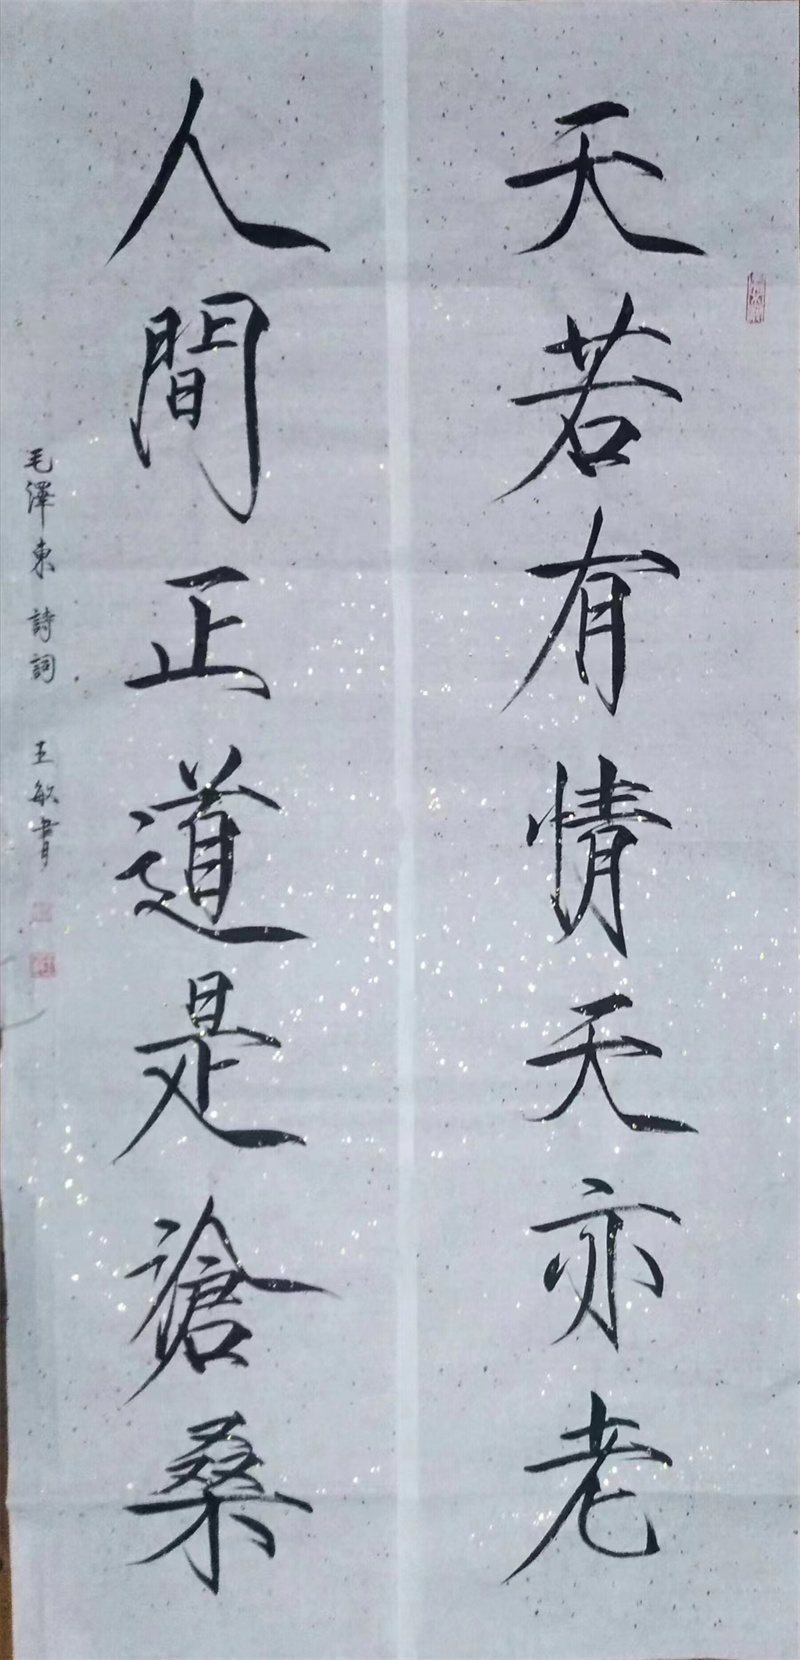 天若有情天亦老
人間正道是滄桑
毛澤東詩詞 王敏書